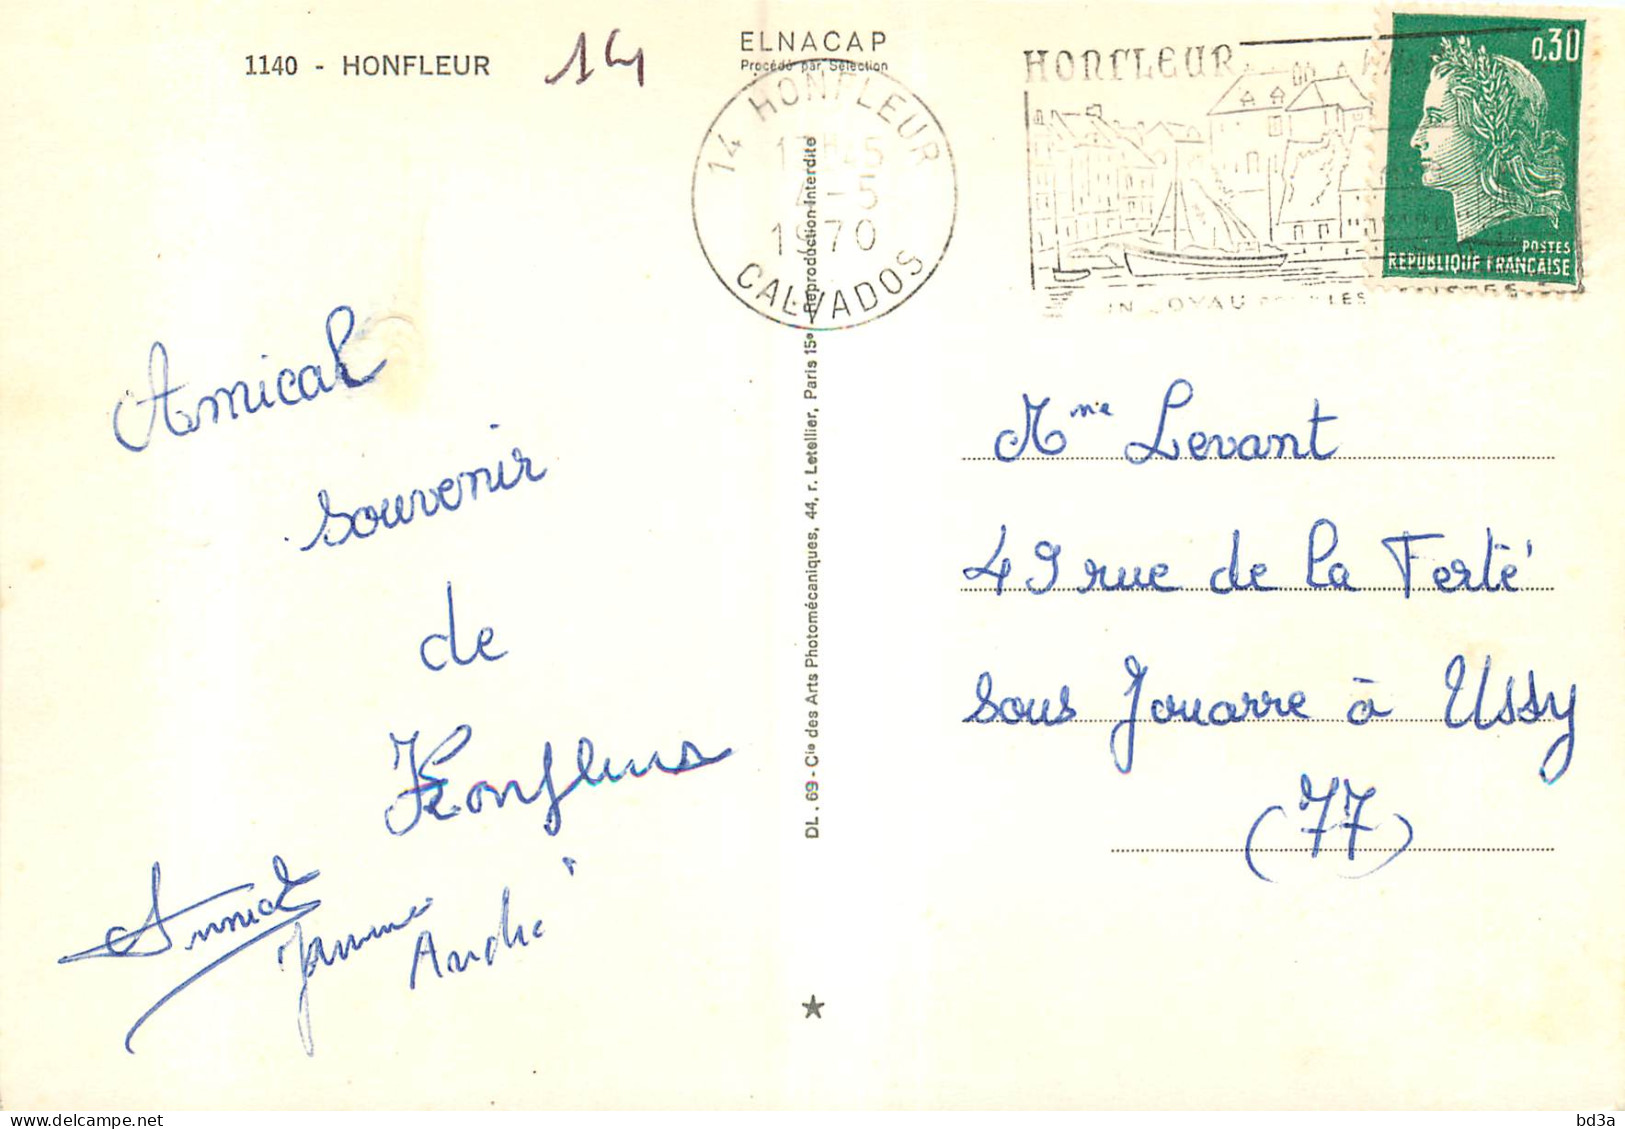 1140 - HONFLEUR
14
ELNACAP
Procédé par Sélection
14 HONFLEUR
4-5
1970
CALVADOS
HONFLEUR
0,30
POSTES
REPUBLIQUE FRANCAISE
Amical
souvenir
de
Honfleur
André
DL. 69 - Cie des Arts Photomécaniques, 44, r. Letellier, Paris 15e - Reproduction Interdite
Mme Levant
49 rue de la Ferté
sous Jouarre à Ussy
(77)
bd3a